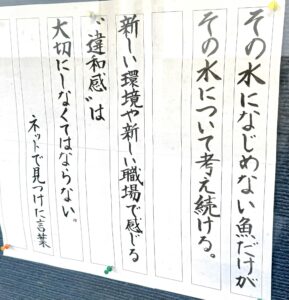 その水になじめない魚だけが
その水について考え続ける。
新しい環境や新しい職場で感じる
“違和感”は
大切にしなくてはならない。
ネットで見つけた言葉